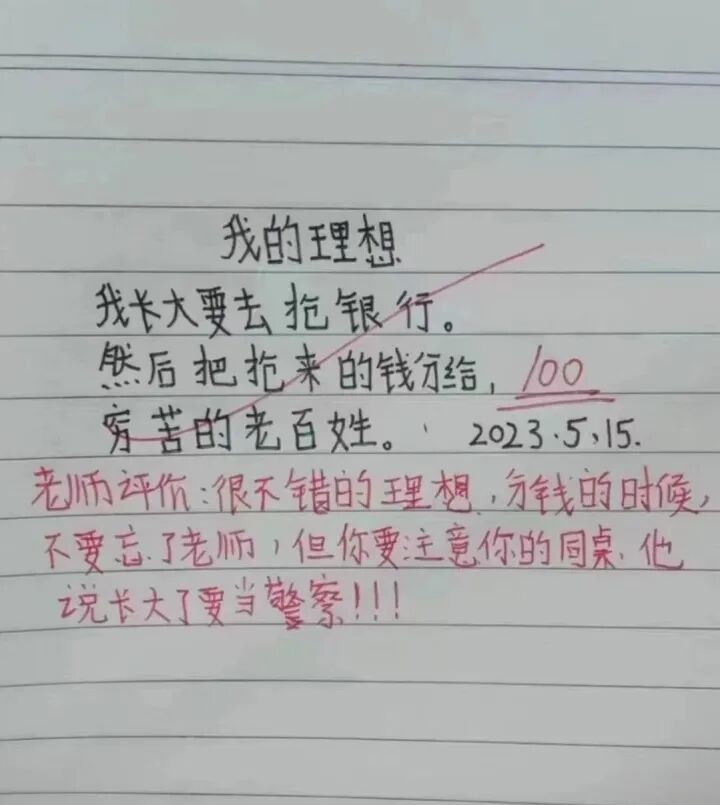 我的理想
我长大要去抢银行。
然后把抢来的钱分给,
100
穷苦的老百姓。
2023.5.15.
老师评价:很不错的理想,分钱的时候,
不要忘了老师,但你要注意你的同桌.他
说长大了要当警察!!!